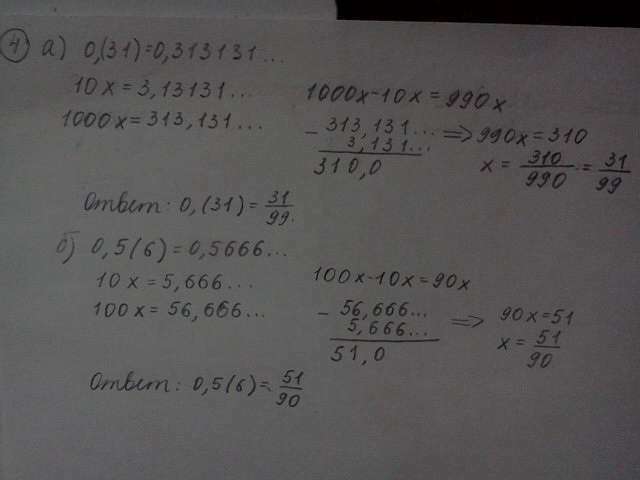 4 а) 0,(31)=0,313131...
10x=3,13131...
1000x=313,131...
1000x-10x=990x
- 313,131...
3,131...
310,0
=> 990x=310
x= 310/990 = 31/99
Ответ: 0,(31)= 31/99.
б) 0,5(6)=0,5666...
10x=5,666...
100x=56,666...
100x-10x=90x
- 56,666...
5,666...
51,0
=> 90x=51
x= 51/90
Ответ: 0,5(6)= 51/90